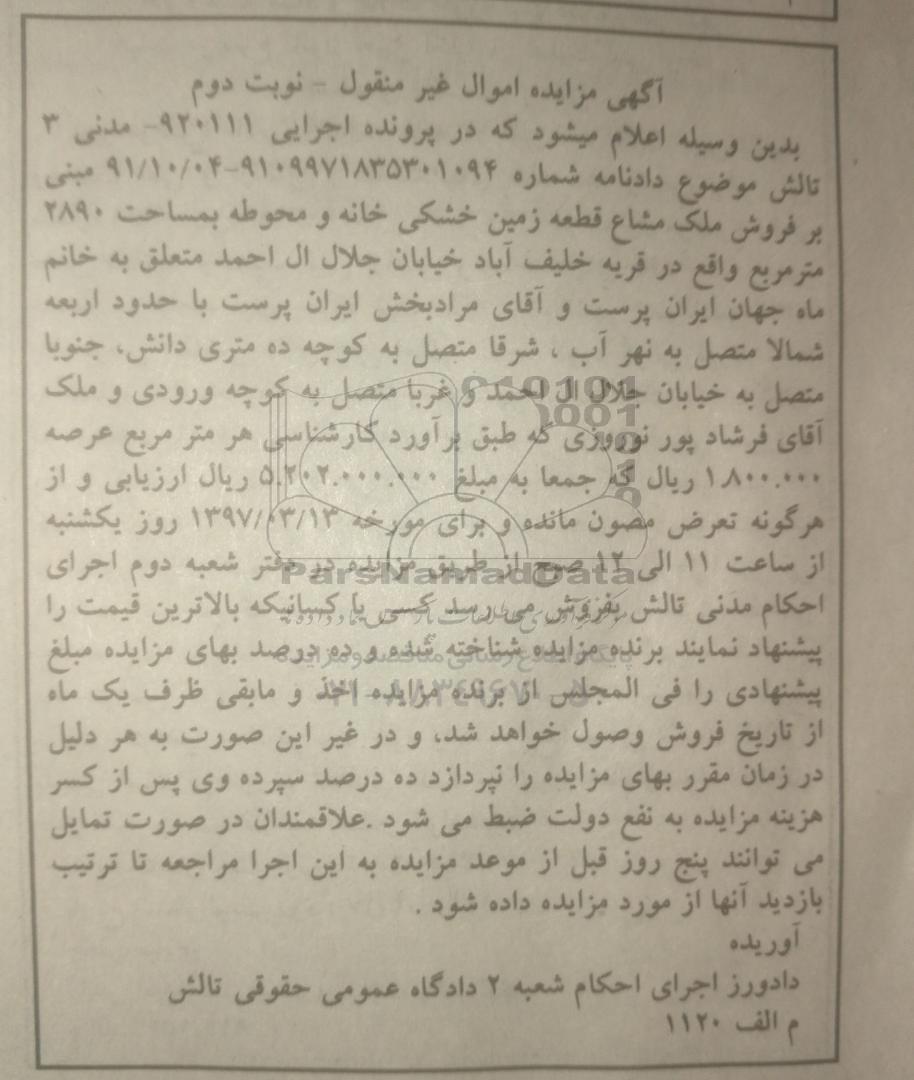 آگهی مزایده اموال غیر منقول - نوبت دوم
بدین وسیله اعلام میشود که در پرونده اجرایی ۹۲۰۱۱۱- مدنی ۳
تالش موضوع دادنامه شماره ۹۱۰۹۹۷۱۸۳۵۳۰۱۰۹۴-۹۱/۱۰/۰۴ مبنی
بر فروش ملک مشاع قطعه زمین خشکی خانه و محوطه بمساحت ۲۸۹۰
مترمربع واقع در قریه خلیف آباد خیابان جلال ال احمد متعلق به خانم
ماه جهان ایران پرست و آقای مرادبخش ایران پرست با حدود اربعه
شمالا متصل به نهر آب ، شرقا متصل به کوچه ده متری دانش، جنوبا
متصل به خیابان جلال ال احمد و غربا متصل به کوچه ورودی و ملک
آقای فرشاد پور نوروزی که طبق برآورد کارشناسی هر متر مربع عرصه
۱.۸۰۰.۰۰۰ ریال که جمعا به مبلغ ۵.۲۰۲.۰۰۰.۰۰۰ ریال ارزیابی و از
هرگونه تعرض مصون مانده و برای مورخه ۱۳۹۷/۰۳/۱۳ روز یکشنبه
از ساعت ۱۱ الی ۱۲ صبح از طریق مزایده در دفتر شعبه دوم اجرای
ParsNamadData
احکام مدنی تالش بفروش می رسد کسی یا کسانیکه بالاترین قیمت را
پیشنهاد نمایند برنده مزایده شناخته شده و ده درصد بهای مزایده مبلغ
پیشنهادی را فی المجلس از برنده مزایده اخذ و مابقی ظرف یک ماه
از تاریخ فروش وصول خواهد شد، و در غیر این صورت به هر دلیل
در زمان مقرر بهای مزایده را نپردازد ده درصد سپرده وی پس از کسر
هزینه مزایده به نفع دولت ضبط می شود .علاقمندان در صورت تمایل
می توانند پنج روز قبل از موعد مزایده به این اجرا مراجعه تا ترتیب
بازدید آنها از مورد مزایده داده شود .
آوریده
دادورز اجرای احکام شعبه ۲ دادگاه عمومی حقوقی تالش
م الف ۱۱۲۰